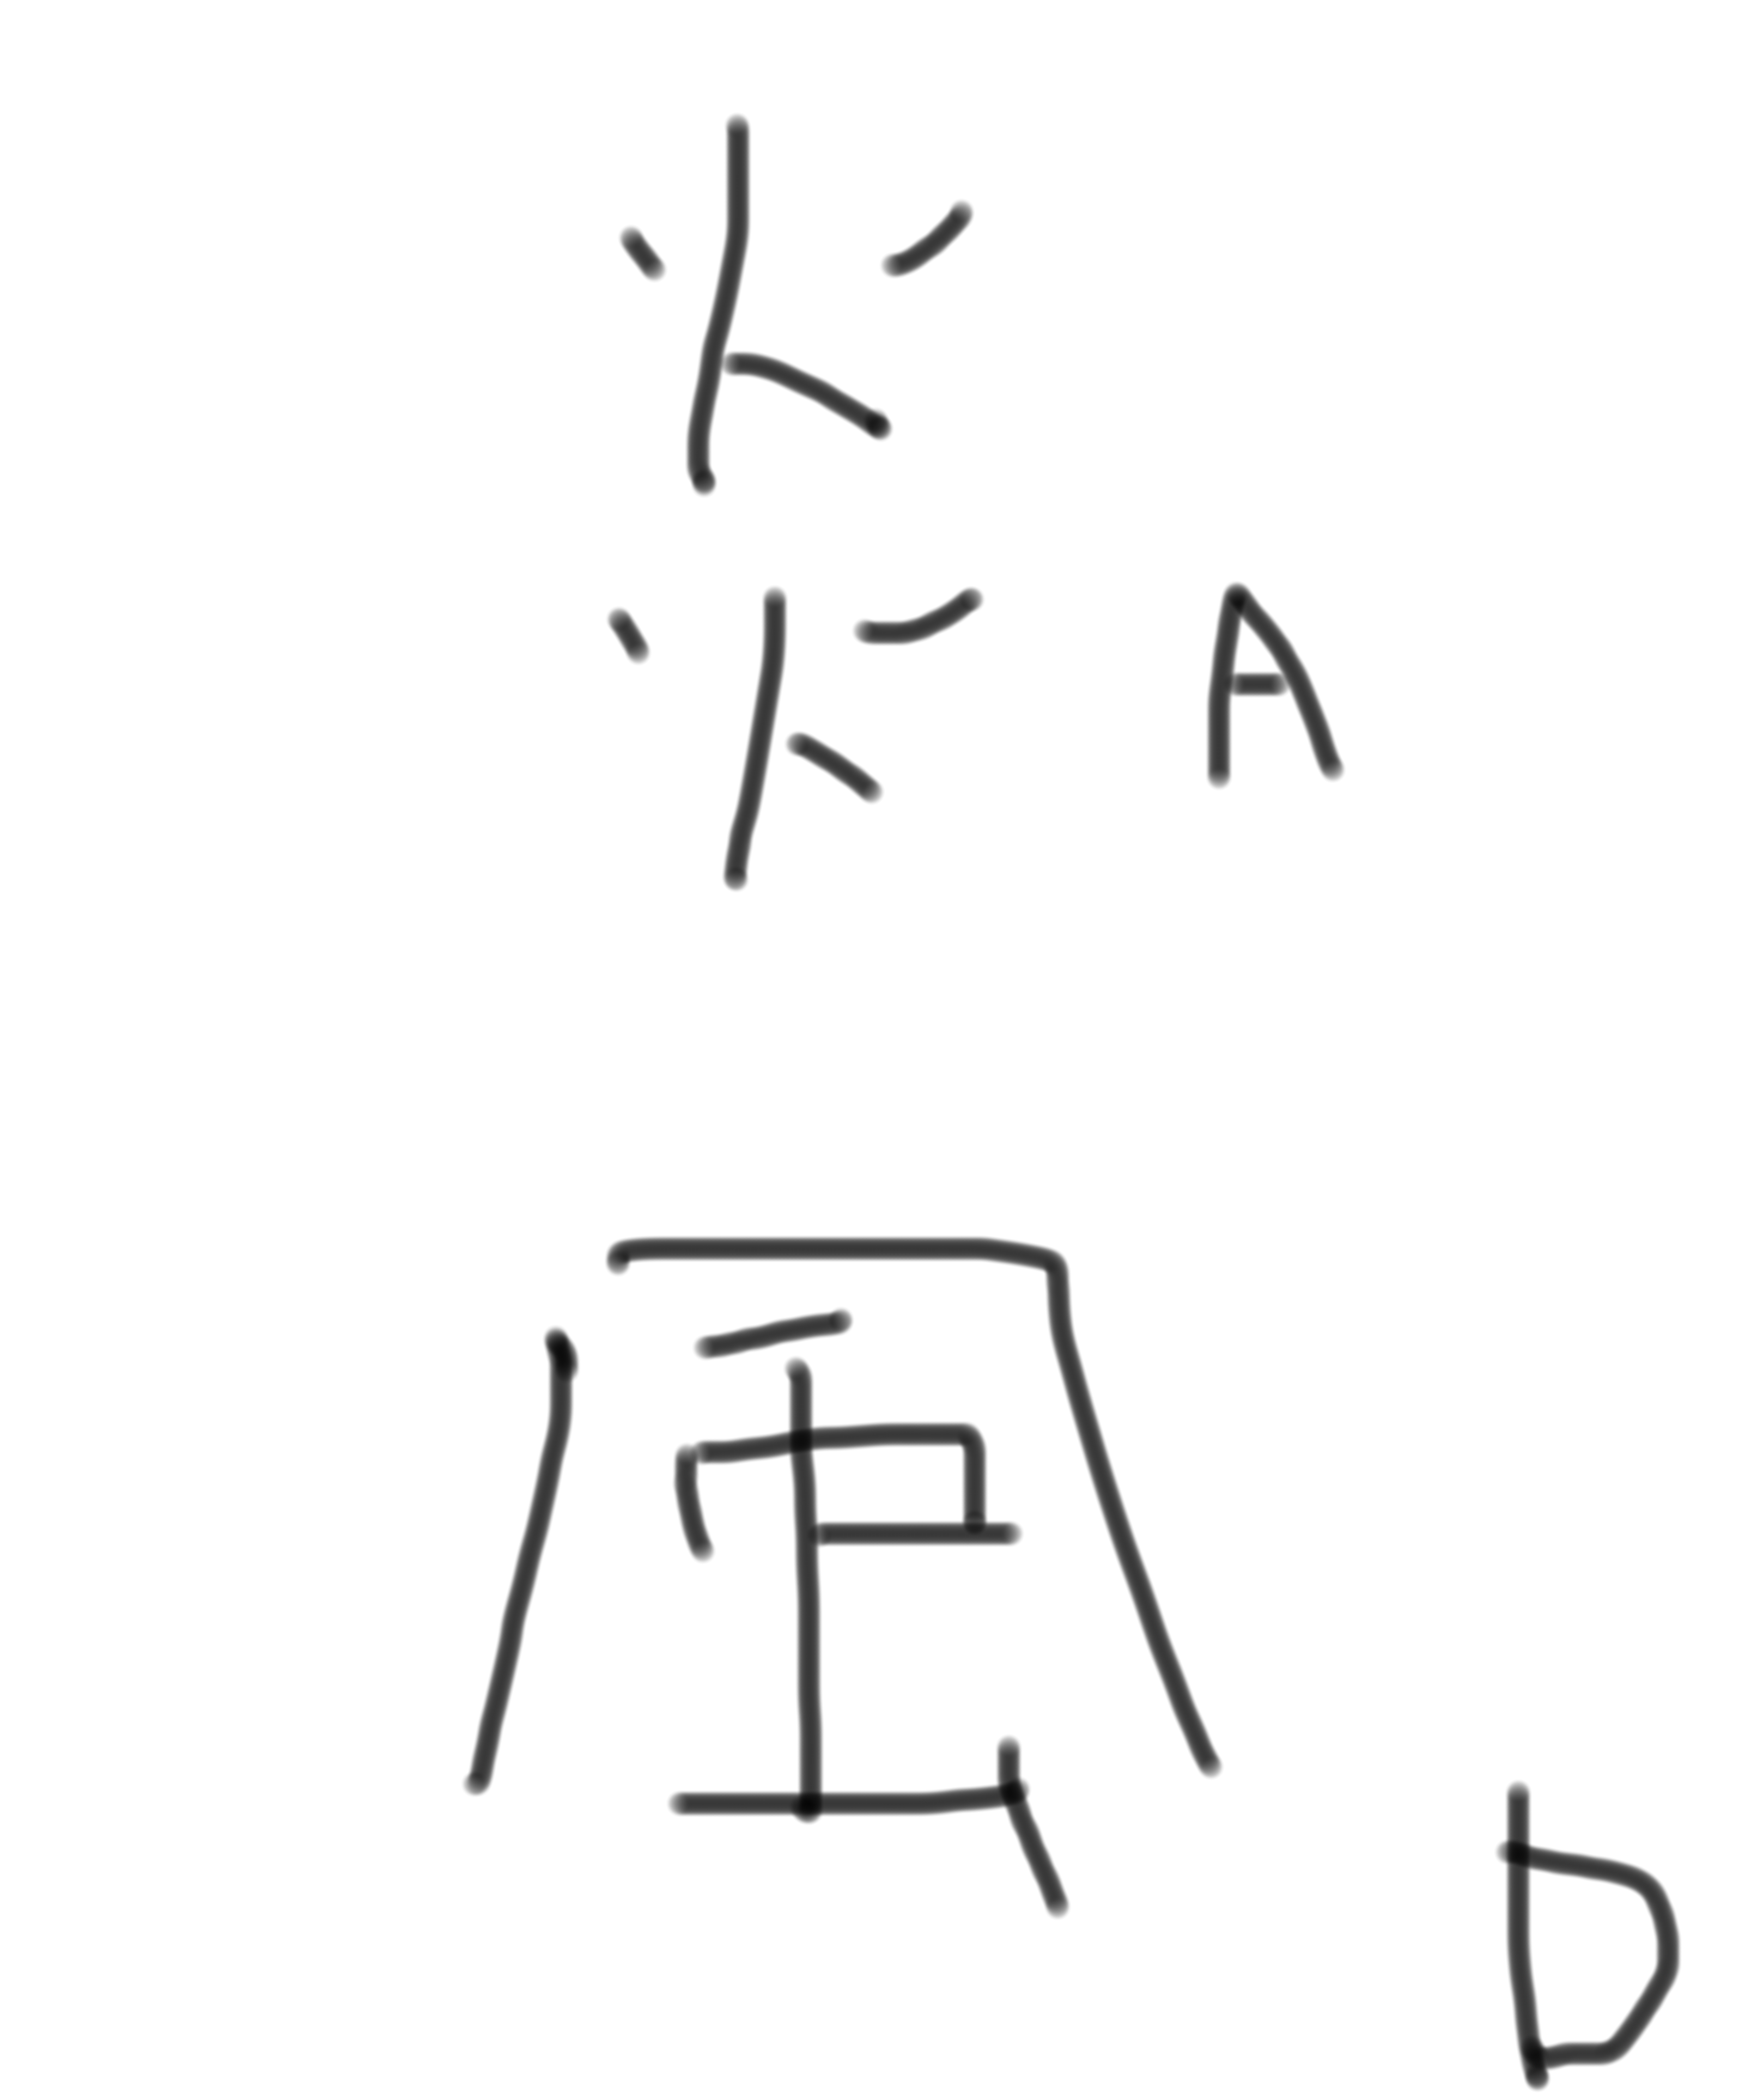 炎 A
風 D